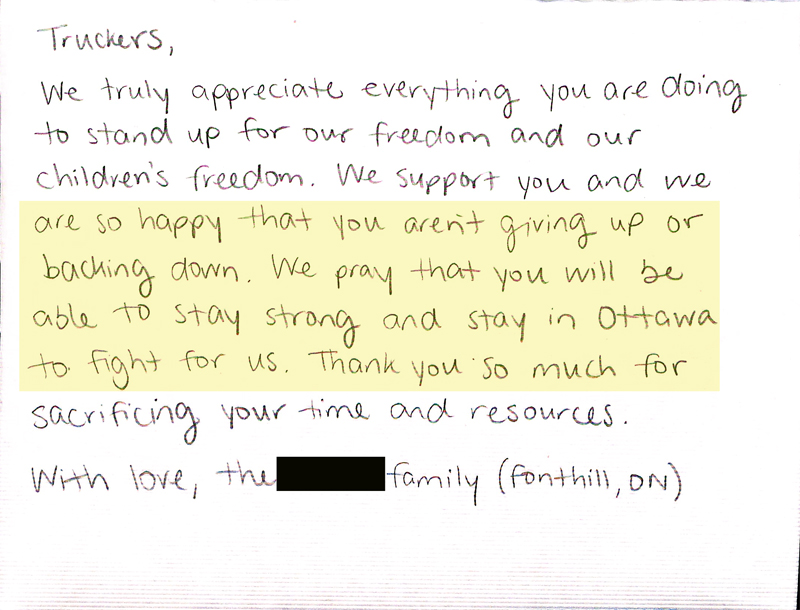 Truckers,
We truly appreciate everything you are doing
to stand up for our freedom and our
children's freedom. We support you and we
are so happy that you aren't giving up or
backing down. We pray that you will be
able to stay strong and stay in Ottawa
to fight for us. Thank you so much for
sacrificing your time and resources.
With love, the family (Fonthill, ON)